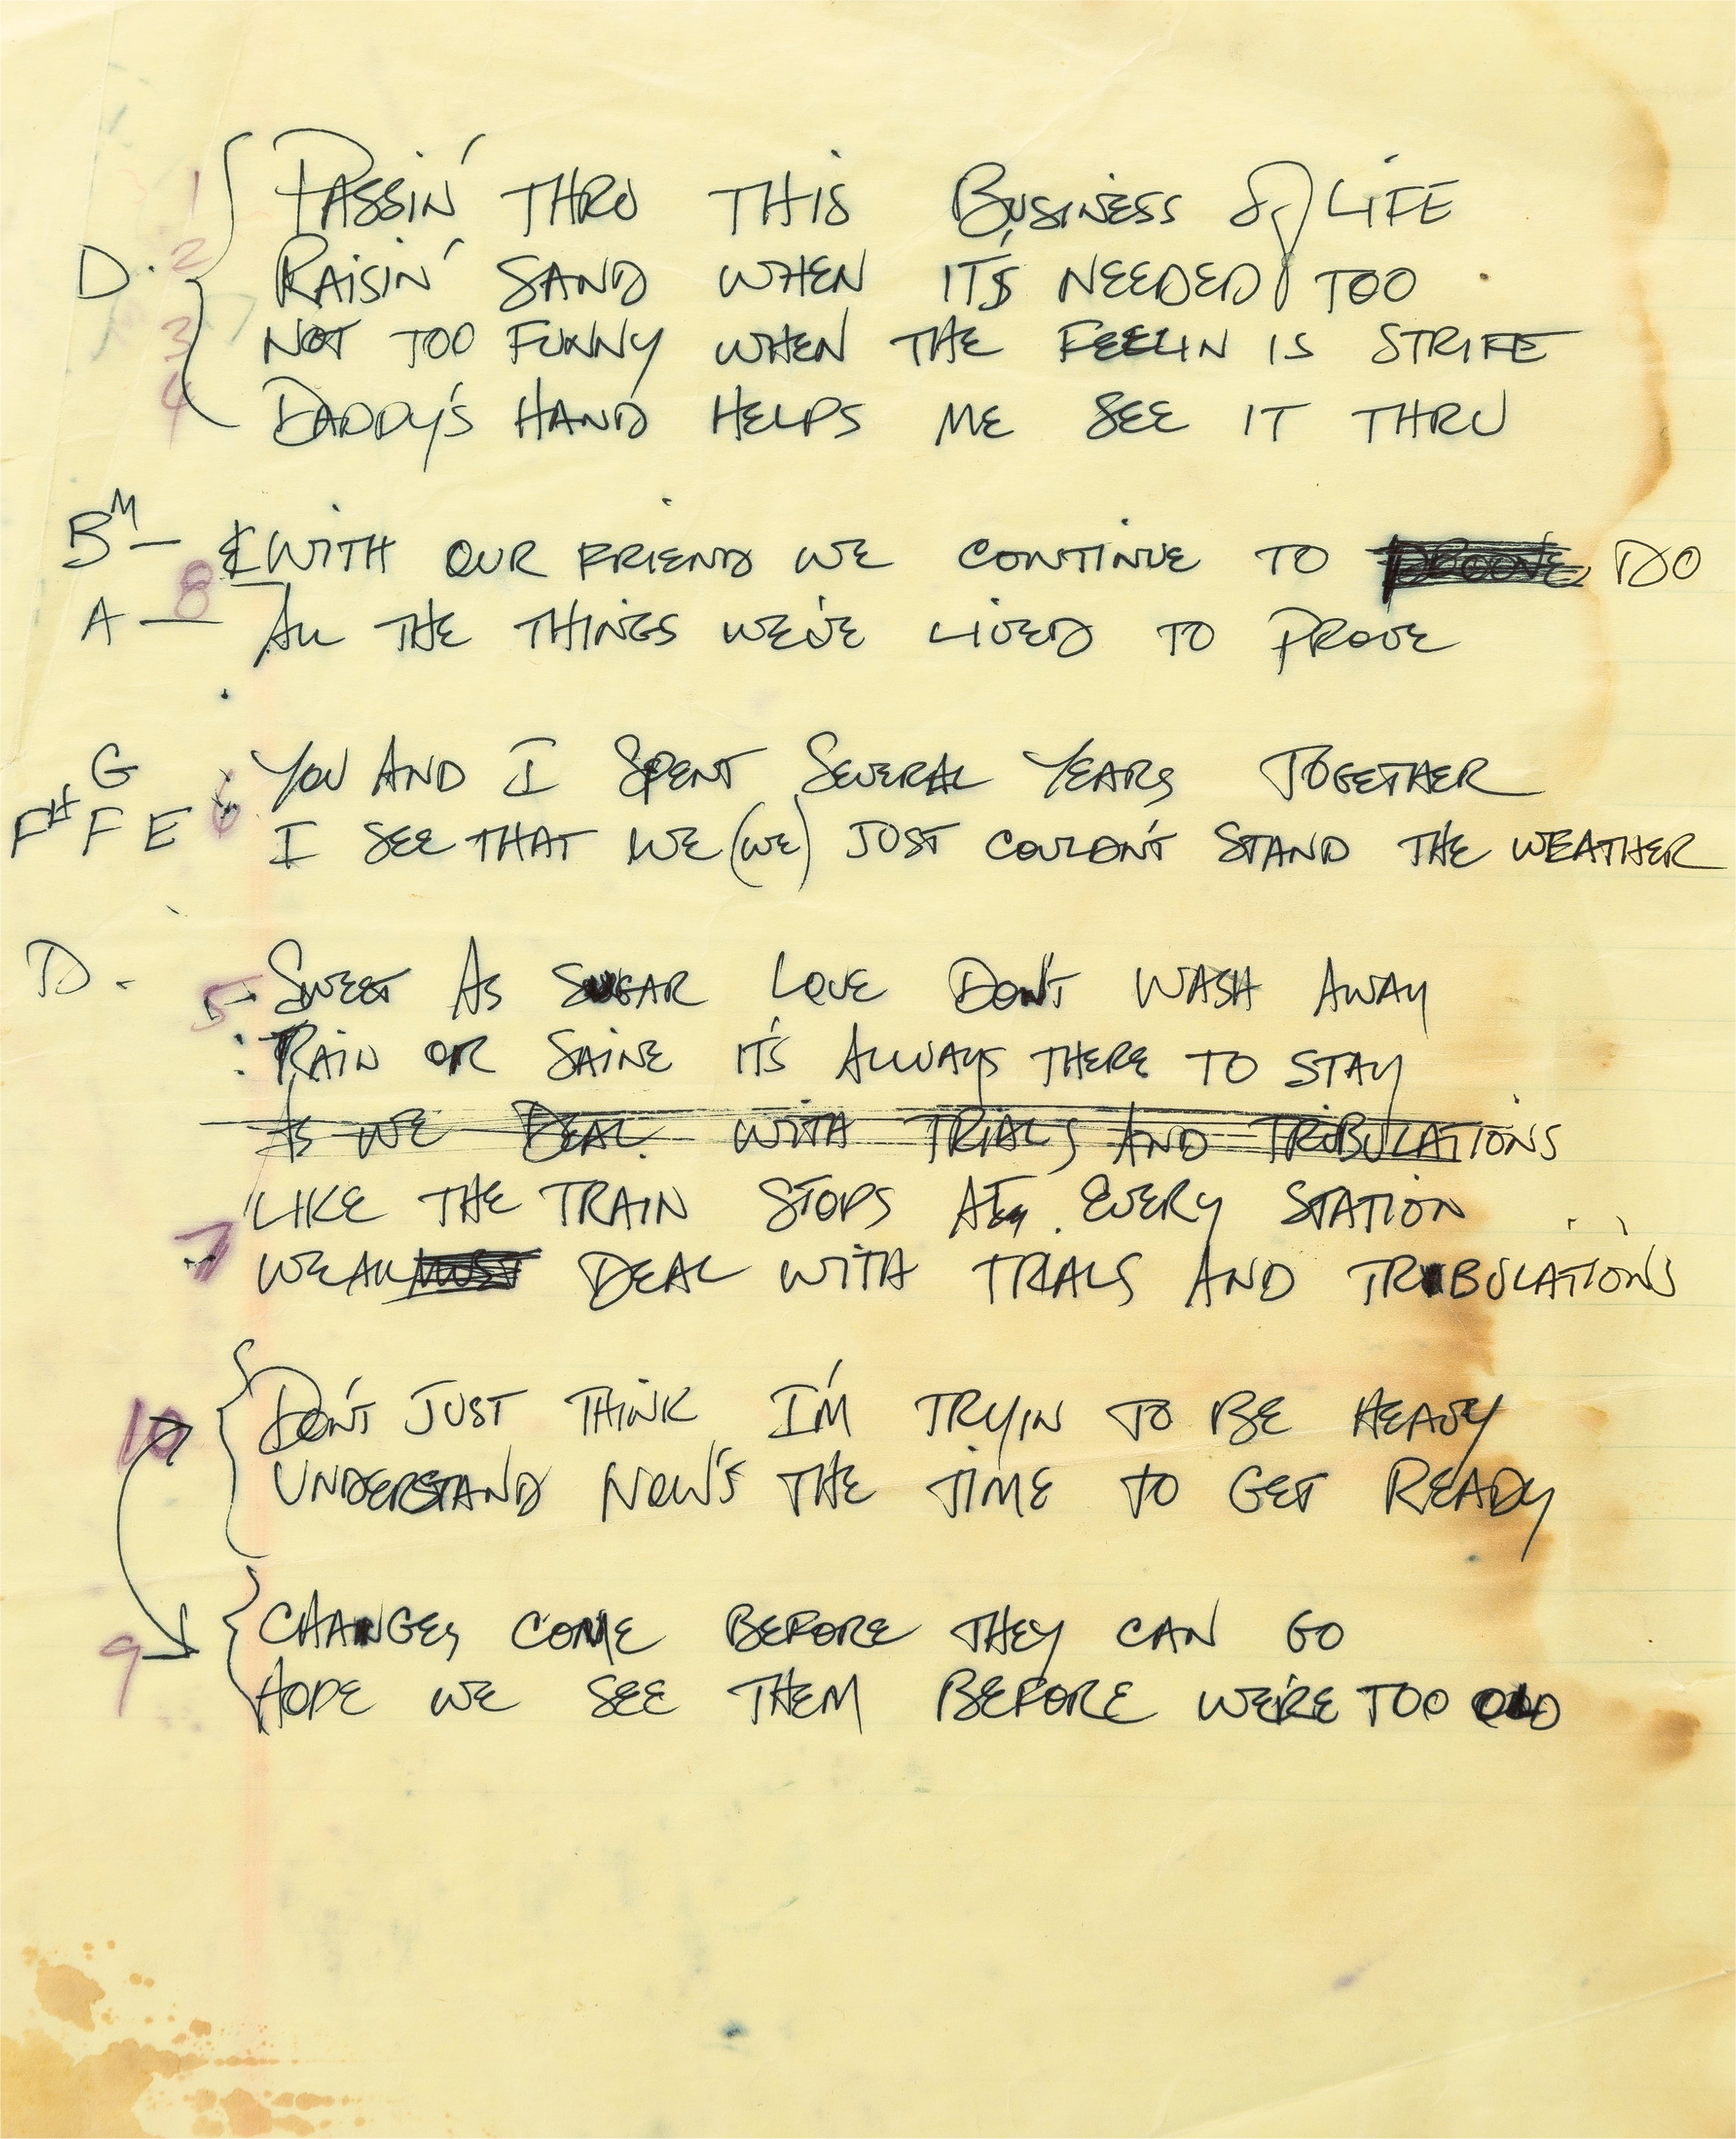 1 PASSIN' THRU THIS BUSINESS OF LIFE
D. 2 RAISIN' SAND WHEN IT'S NEEDED TOO
3 NOT TOO FUNNY WHEN THE FEELIN IS STRIFE
4 DADDY'S HAND HELPS ME SEE IT THRU
BM – & WITH OUR FRIEND WE CONTINUE TO PROOVE DO
A – 8 ALL THE THINGS WE'VE LIVED TO PROVE
G YOU AND I SPENT SEVERAL YEARS TOGETHER
F# F E 6 I SEE THAT WE (WE) JUST COULDN'T STAND THE WEATHER
D. 5 SWEET AS SUGAR LOVE DON'T WASH AWAY
RAIN OR SHINE IT'S ALWAYS THERE TO STAY
AS WE DEAL WITH TRIALS AND TRIBULATIONS
LIKE THE TRAIN STOPS AT EVERY STATION
7 WE ALL MUST DEAL WITH TRIALS AND TRIBULATIONS
10 DON'T JUST THINK I'M TRYIN TO BE HEAVY
UNDERSTAND NOW'S THE TIME TO GET READY
9 CHANGES COME BEFORE THEY CAN GO
HOPE WE SEE THEM BEFORE WE'RE TOO OLD